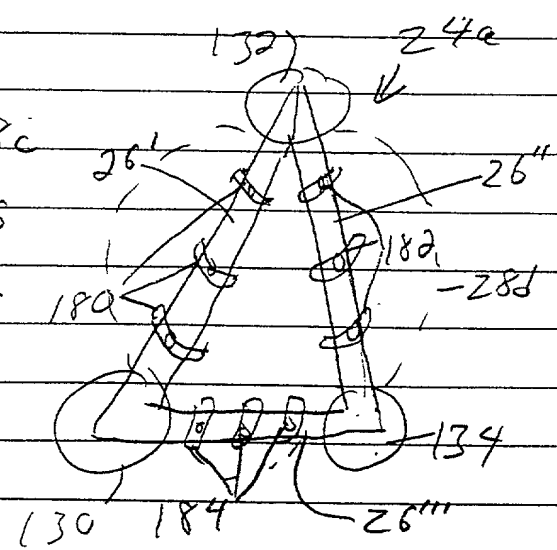 132
24a
26'
26"
180
182
28d
134
130
184
26'''